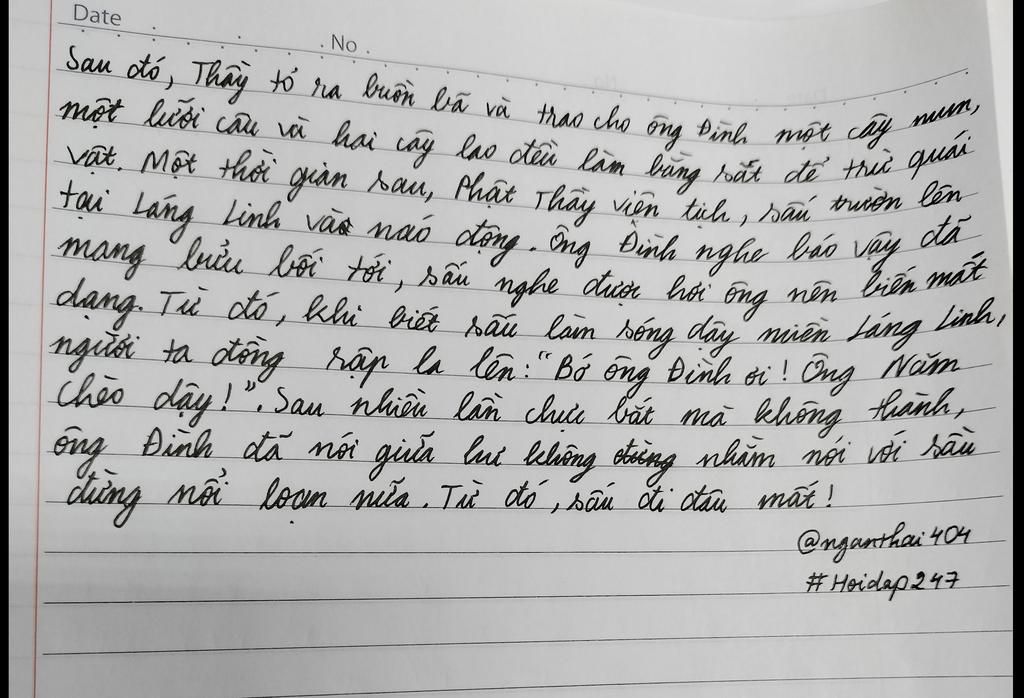 Date
No.
Sau đó, Thầy tỏ ra buồn bã và trao cho ông Đình một cây mun,
một lưỡi câu và hai cây lao đều làm bằng sắt để trừ quái
vật. Một thời gian sau, Phật Thầy viên tịch, sấu trườn lên
tại Láng Linh vào náo động. Ông Đình nghe báo vậy đã
mang bửu bối tới, sấu nghe được hơi ông nên biến mất
dạng. Từ đó, khi biết sấu làm sóng dậy miền Láng Linh,
người ta đồng rập la lên: "Bớ ông Đình ơi! Ông Năm
Chèo dậy!". Sau nhiều lần chực bắt mà không thành,
ông Đình đã nói giữa hư không nhằm nói với sấu
đừng nổi loạn nữa. Từ đó, sấu đi đâu mất!
@nganthai404
#Hoidap247